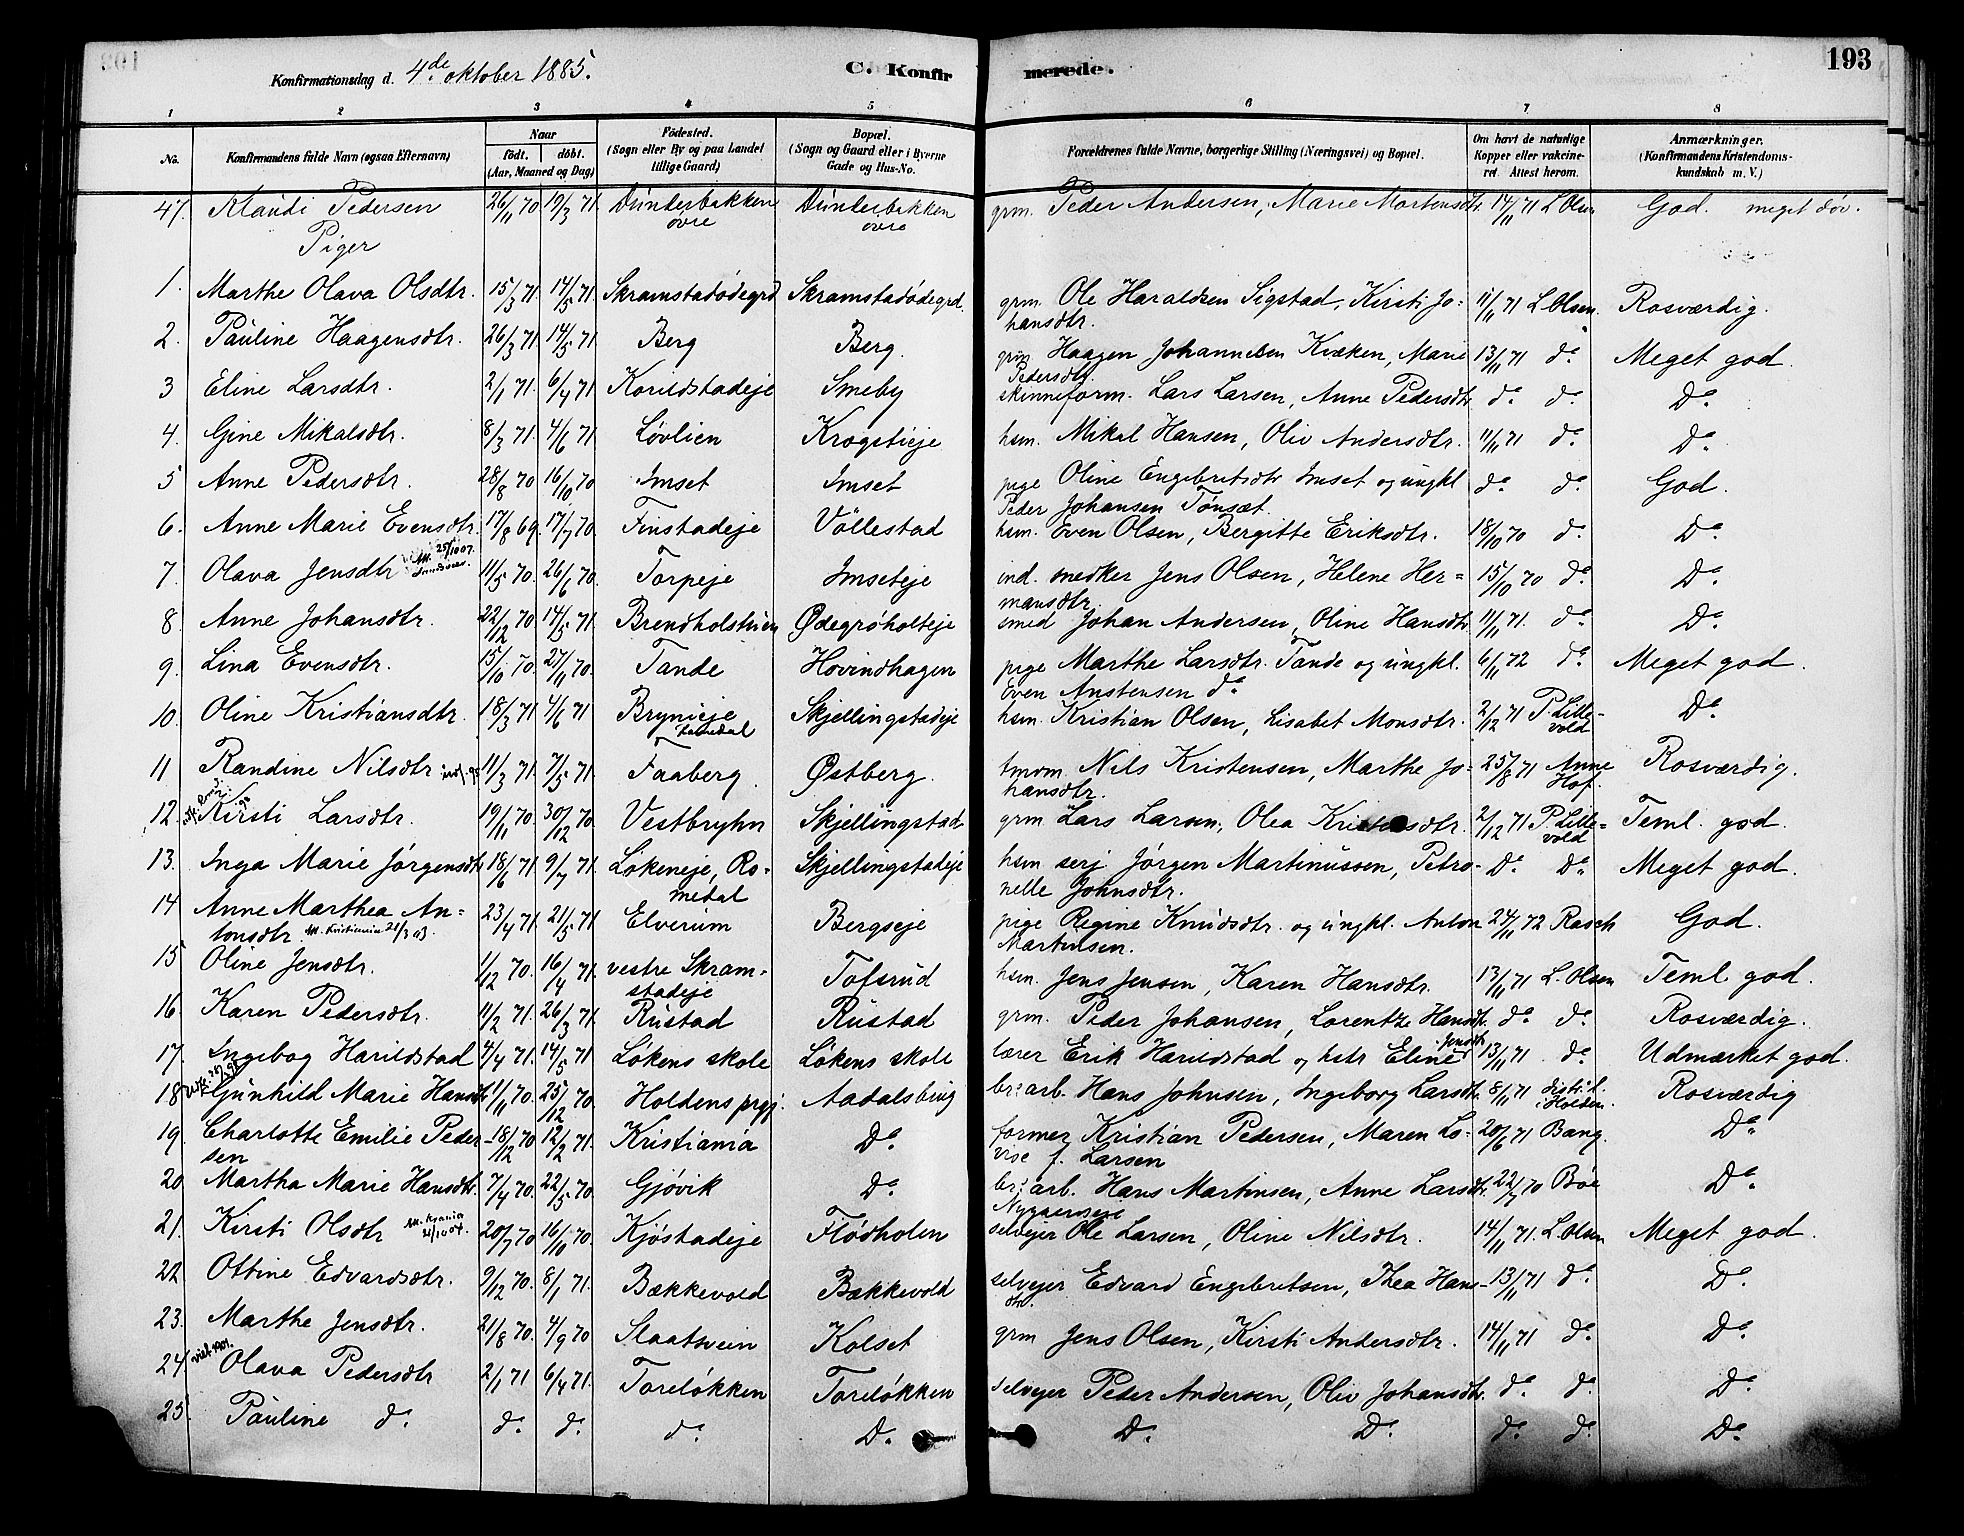 193
Konfirmationsdag d. 4de oktober 1885. C. Konfirmerede.
1 2 3 4 5 6 7 8
No. Konfirmandens fulde Navn (ogsaa Efternavn) Naar födt. döbt. (Aar, Maaned og Dag) Födested. (Sogn eller By og paa Landet tillige Gaard) Bopæl. (Sogn og Gaard eller i Byerne Gade og Hus-No. Forældrenes fulde Navne, borgerlige Stilling (Næringsvei) og Bopæl. Om havt de naturlige Kopper eller vakcineret. Attest herom. Anmærkninger. (Konfirmandens Kristendomskundskab m. V.)
47. Klaudi Pedersen 26/11 70 19/3 71. Dunderbakken övre Dunderbakken övre grm. Peder Andersen, Marie Martensdtr. 14/11 71 L Olsen God. meget döv.
Piger
1. Marthe Olava Olsdtr. 15/3 71. 14/5 71. Skramstadödegrd Skramstadödegrd. grm. Ole Haraldsen Sigstad, Kirsti Johansdtr. 11/11 71 L. Olsen. Rosværdig.
2. Pauline Haagensdtr. 26/3 71. 14/5 71 Berg Berg. grm. Haagen Johannesen Kvæken, Marie Pedersdtr. 13/11 71 do. Meget god
3 Eline Larsdtr. 2/1 71. 6/4 71 Korildstadeje Smeby skinneform. Lars Larsen, Anne Pedersdtr do. do. Do.
4. Gine Mikalsdtr. 8/3 71. 4/6 71 Lövlien Krogstieje hsm. Mikal Hansen, Oliv Andersdtr. 11/11 71 do. Do.
5 Anne Pedersdtr. 28/8 70 16/10 70 Imset Imset pige Oline Engebretsdtr Imset og ungkl Peder Johansen Tönsæt. do. do. God.
6. Anne Marie Evensdtr. 17/8 69. 17/7 70. Finstadeje Völlestad hsm. Even Olsen, Bergitte Eriksdtr. 18/10 70 do. Do.
7. Olava Jensdtr 25/10 07. 11/5 70. 26/6 70. Torpeje Imseteje ind. snedker Jens Olsen, Helene Hermansdtr. 15/10 70 do. Do.
8. Anne Johansdtr. 22/12 70 14/5 71. Brendholstuen Ødegröholteje smed Johan Andersen, Oline Hansdtr 11/11 71. do. Do.
9. Lina Evensdtr. 15/10 70. 27/11 70. Tande Hovindhagen pige Marthe Larsdtr. Tande og ungkl. Even Anstensen do. 6/11 72 do. Meget god.
10. Oline Kristiansdtr. 18/3 71 4/6 71 Brynieje Skjellingstadeje hsm. Kristian Olsen, Lisabet Monsdtr. 2/12 71 P Lillevold Do.
11 Randine Nilsdtr 11/3 71. 7/5 71. Faaberg Østberg. tmvm. Nils Kristensen, Marthe Johansdtr. 25/8 71 Anne Hof. Rosværdig.
12. Kirsti Larsdtr. 19/11 70. 30/12 70. Vestbryhn Skjellingstad grm. Lars Larsen, Olea 2/12 71 P Lillevold Teml. god.
13. Inga Marie Jörgensdtr 18/6 71 9/7 71. Lökeneje, Romedal Skjellingstadeje hsm serj. Jörgen Martinussen, Petronelle Johnsdtr. Do. Do. Meget god.
14 Anne Marthea Antonsdtr. Kristiania 21/3 03. 23/4 71. 21/5 71. Elverum Bergseje pige Regine Knudsdtr. og ungkl. Anton Martinsen. 24/11 72 Rasch God.
15 Oline Jensdtr. 1/12 70. 16/4 71. vestre Skramstadeje Tofsrud hsm. Jens Jensen, Karen Hansdtr. 13/11 71 L. Olsen Teml god.
16. Karen Pedersdtr. 11/2 71. 26/3 71. Rustad Rustad grm. Peder Johansen, Lorentze Hansdtr. do. do. Rosværdig.
17. Ingebog Harildstad 4/4 71. 14/5 71 Lökens skole Lökens skole lærer Erik Harildstad og hstr Eline Jensdtr 13/11 71 do. Udmærket god.
18 Gunhild Marie Hansdtr 11/11 70. 25/12 70. Holdens prgj. Aadalsbrug br: arb. Hans Johnsen, Ingeborg Larsdtr. 8/11 71 distr. l. i Holden. Rosværdig
19. Charlotte Emilie Pedersen 18/12 70 12/2 71. Kristiania Do. former Kristian Pedersen, Maren Lovise f. Larsen 20/6 71 Bang. Do.
20 Martha Marie Hansdtr. 7/4 70. 22/5 70. Gjövik Do. br: arb. Hans Martinsen, Anne Larsdtr 22/7 70 Böe Do.
21. Kirsti Olsdtr 21/10 04. 20/7 70 16/10 70. Kjöstadeje Flödholen selvejer Ole Larsen, Oline Nilsdtr. 14/11 71. L. Olsen Meget god.
22 Ottine Edvardsdtr. 9/12 70. 8/1 71. Bækkevold Bækkevold selvejer Edvard Engebretsen, Thea Hansdtr. 13/11 71 do. Do.
23. Marthe Jensdtr. 21/8 70. 4/9 70 Staatsvein Kolset grm Jens Olsen, Kirsti Andersdtr. 14/11 71 do. Do.
24 viet 1901. Olava Pedersdtr 2/1 71 6/4 71. Torelökken Torelökken selvejer Peder Andersen, Oliv Johansdtr. do. do. Do.
25. Pauline do. do. do. do. Do. Do. Do. do. do. Do.